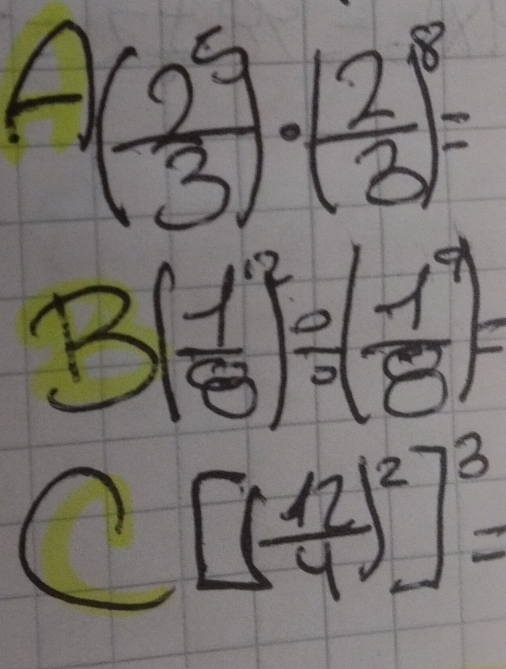 A (2/3)^5 · (2/3)^8 =
B (1/8)^12 ÷ (1/8)^9 =
C [(12/4)^2]^3 =